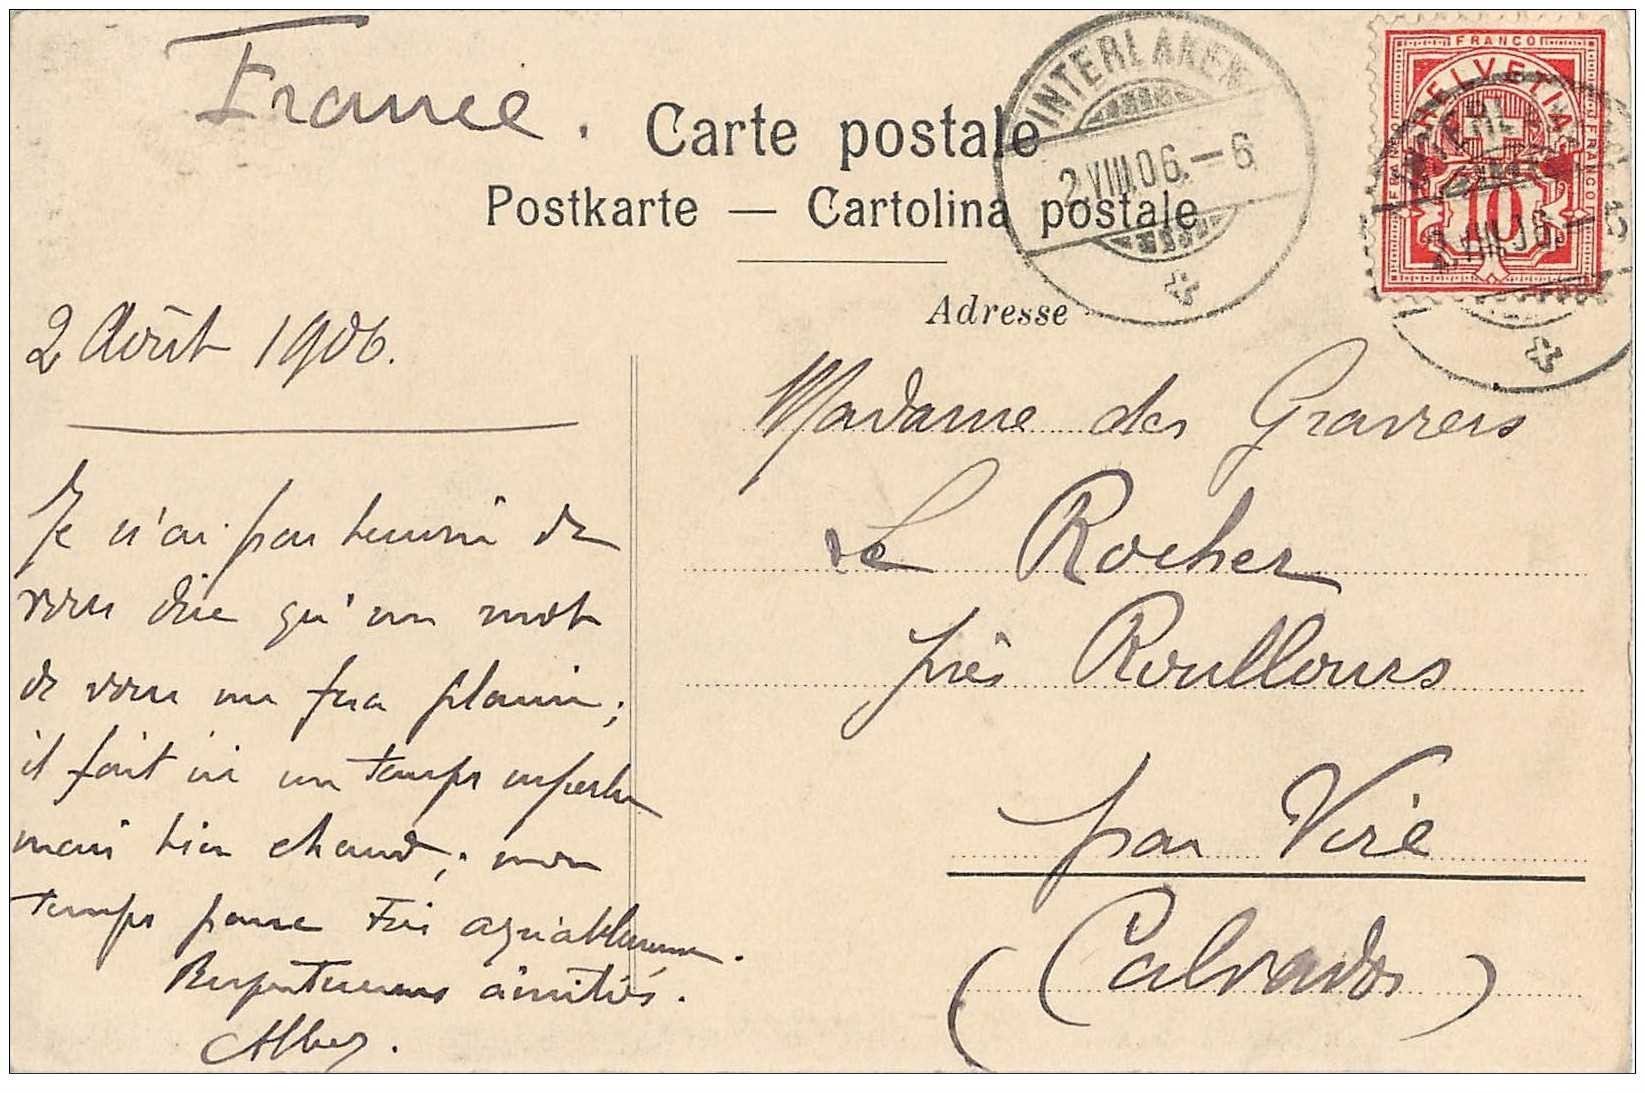 France.
Carte postale
Postkarte — Cartolina postale
Adresse
INTERLAKEN
2.VIII.06.-6
FRANCO
HELVETIA
FRANCO
FRANCO
10
INTERLAKEN
2.VIII.06.-6
2 Août 1906.
Je n'ai pas besoin de
vous dire qu'un mot
de vous me fera plaisir ;
il fait ici un temps superbe
mais bien chaud ; mon
temps passe très agréablement.
Respectueuses amitiés.
Madame des
Le Rocher
près Roullours
par Vire
(Calvados)